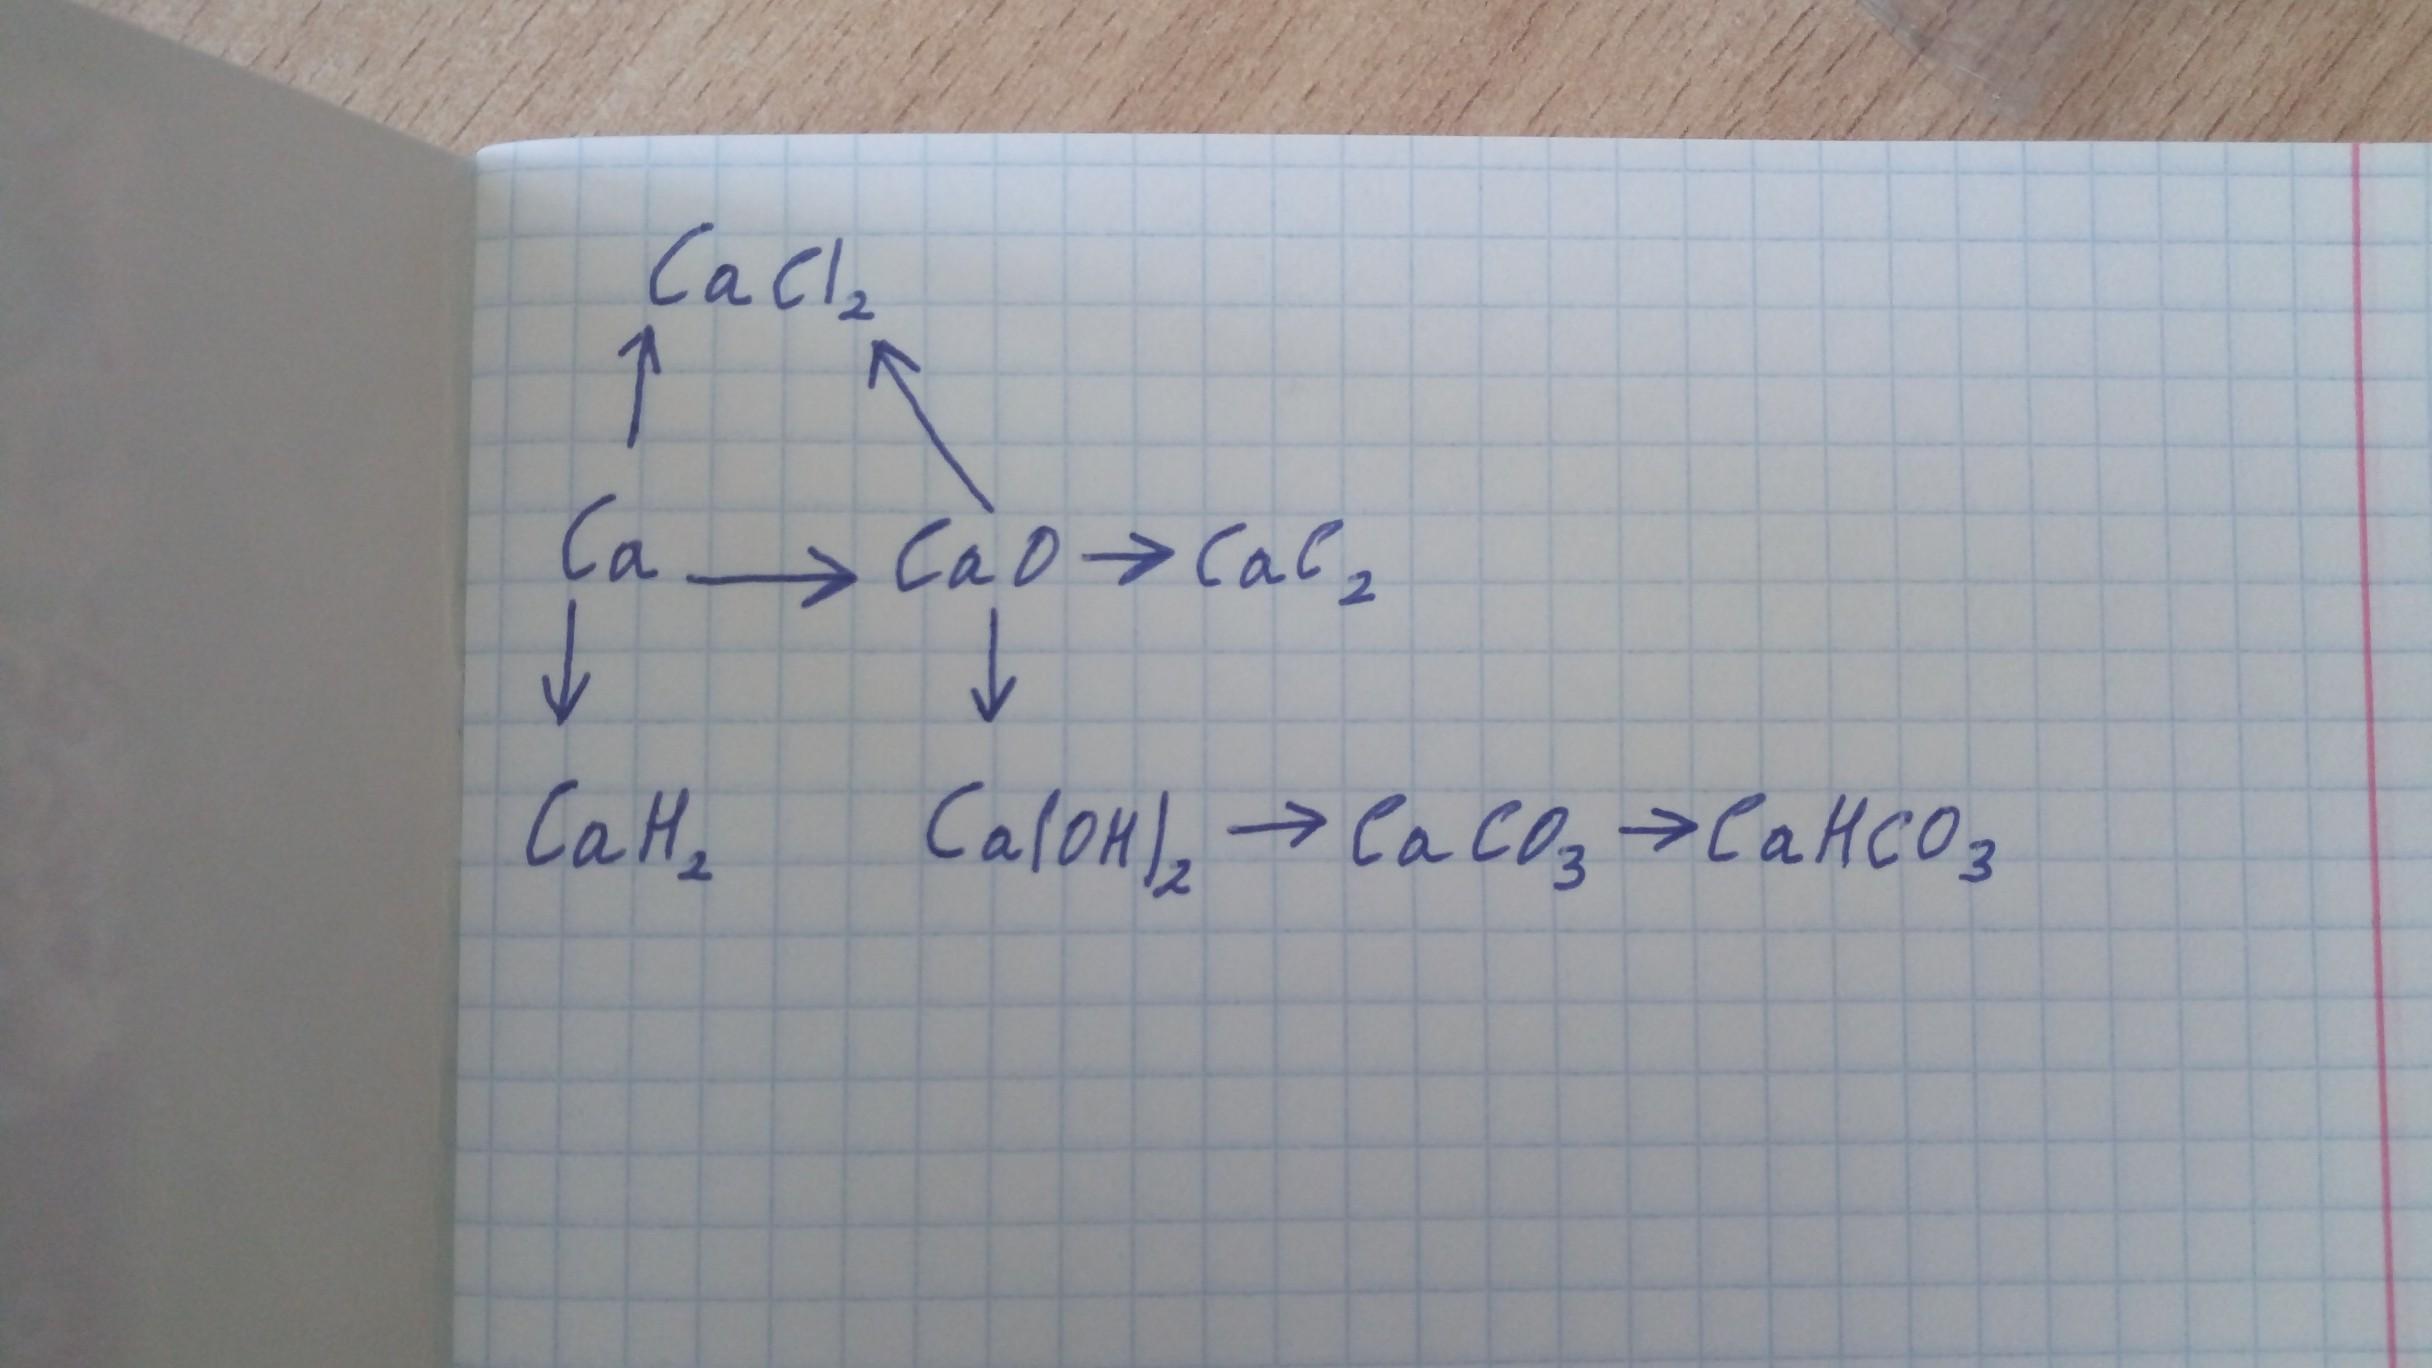 CaCl₂
Ca → CaO → CaC₂
CaH₂ Ca(OH)₂ → CaCO₃ → CaHCO₃